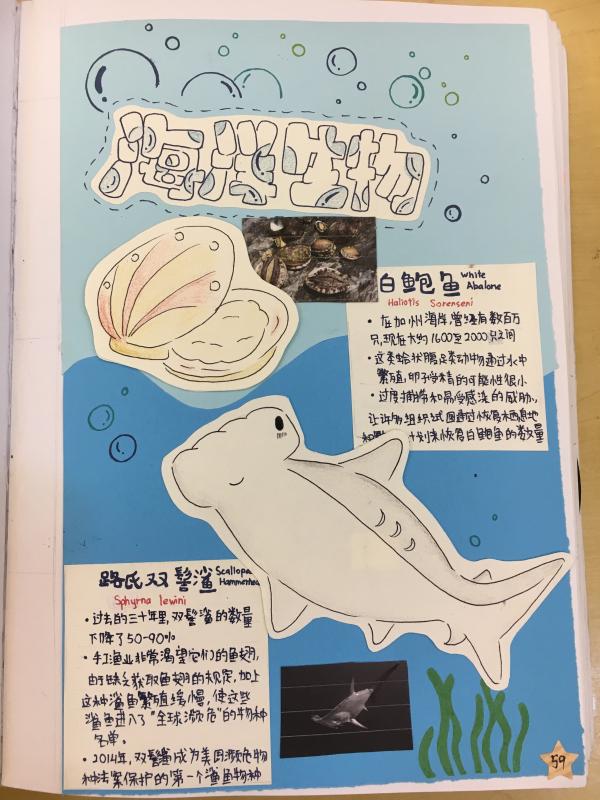 海洋生物
白鲍鱼 White
Abalone
Haliotis Sorenseni
• 在加州海岸,曾经有数百万
只,现在大约1600至2000只之间
• 这类蛤状腹足类动物通过水中
繁殖,卵子受精的可能性很小
• 过度捕捞和易受感染的威胁,
让许多组织试图通过恢复栖息地
和 计划来恢复白鲍鱼的数量
路氏双髻鲨 Scalloped
Hammerhead
Sphyrna lewini
• 过去的三十年里,双髻鲨的数量
下降了50-90%
• 手工渔业非常渴望它们的鱼翅,
由于缺乏获取鱼翅的规定,加上
这种鲨鱼繁殖缓慢,使这些
鲨鱼进入了"全球濒危"的物种
名单。
• 2014年,双髻鲨成为美国濒危物
种法案保护的第一个鲨鱼物种
59